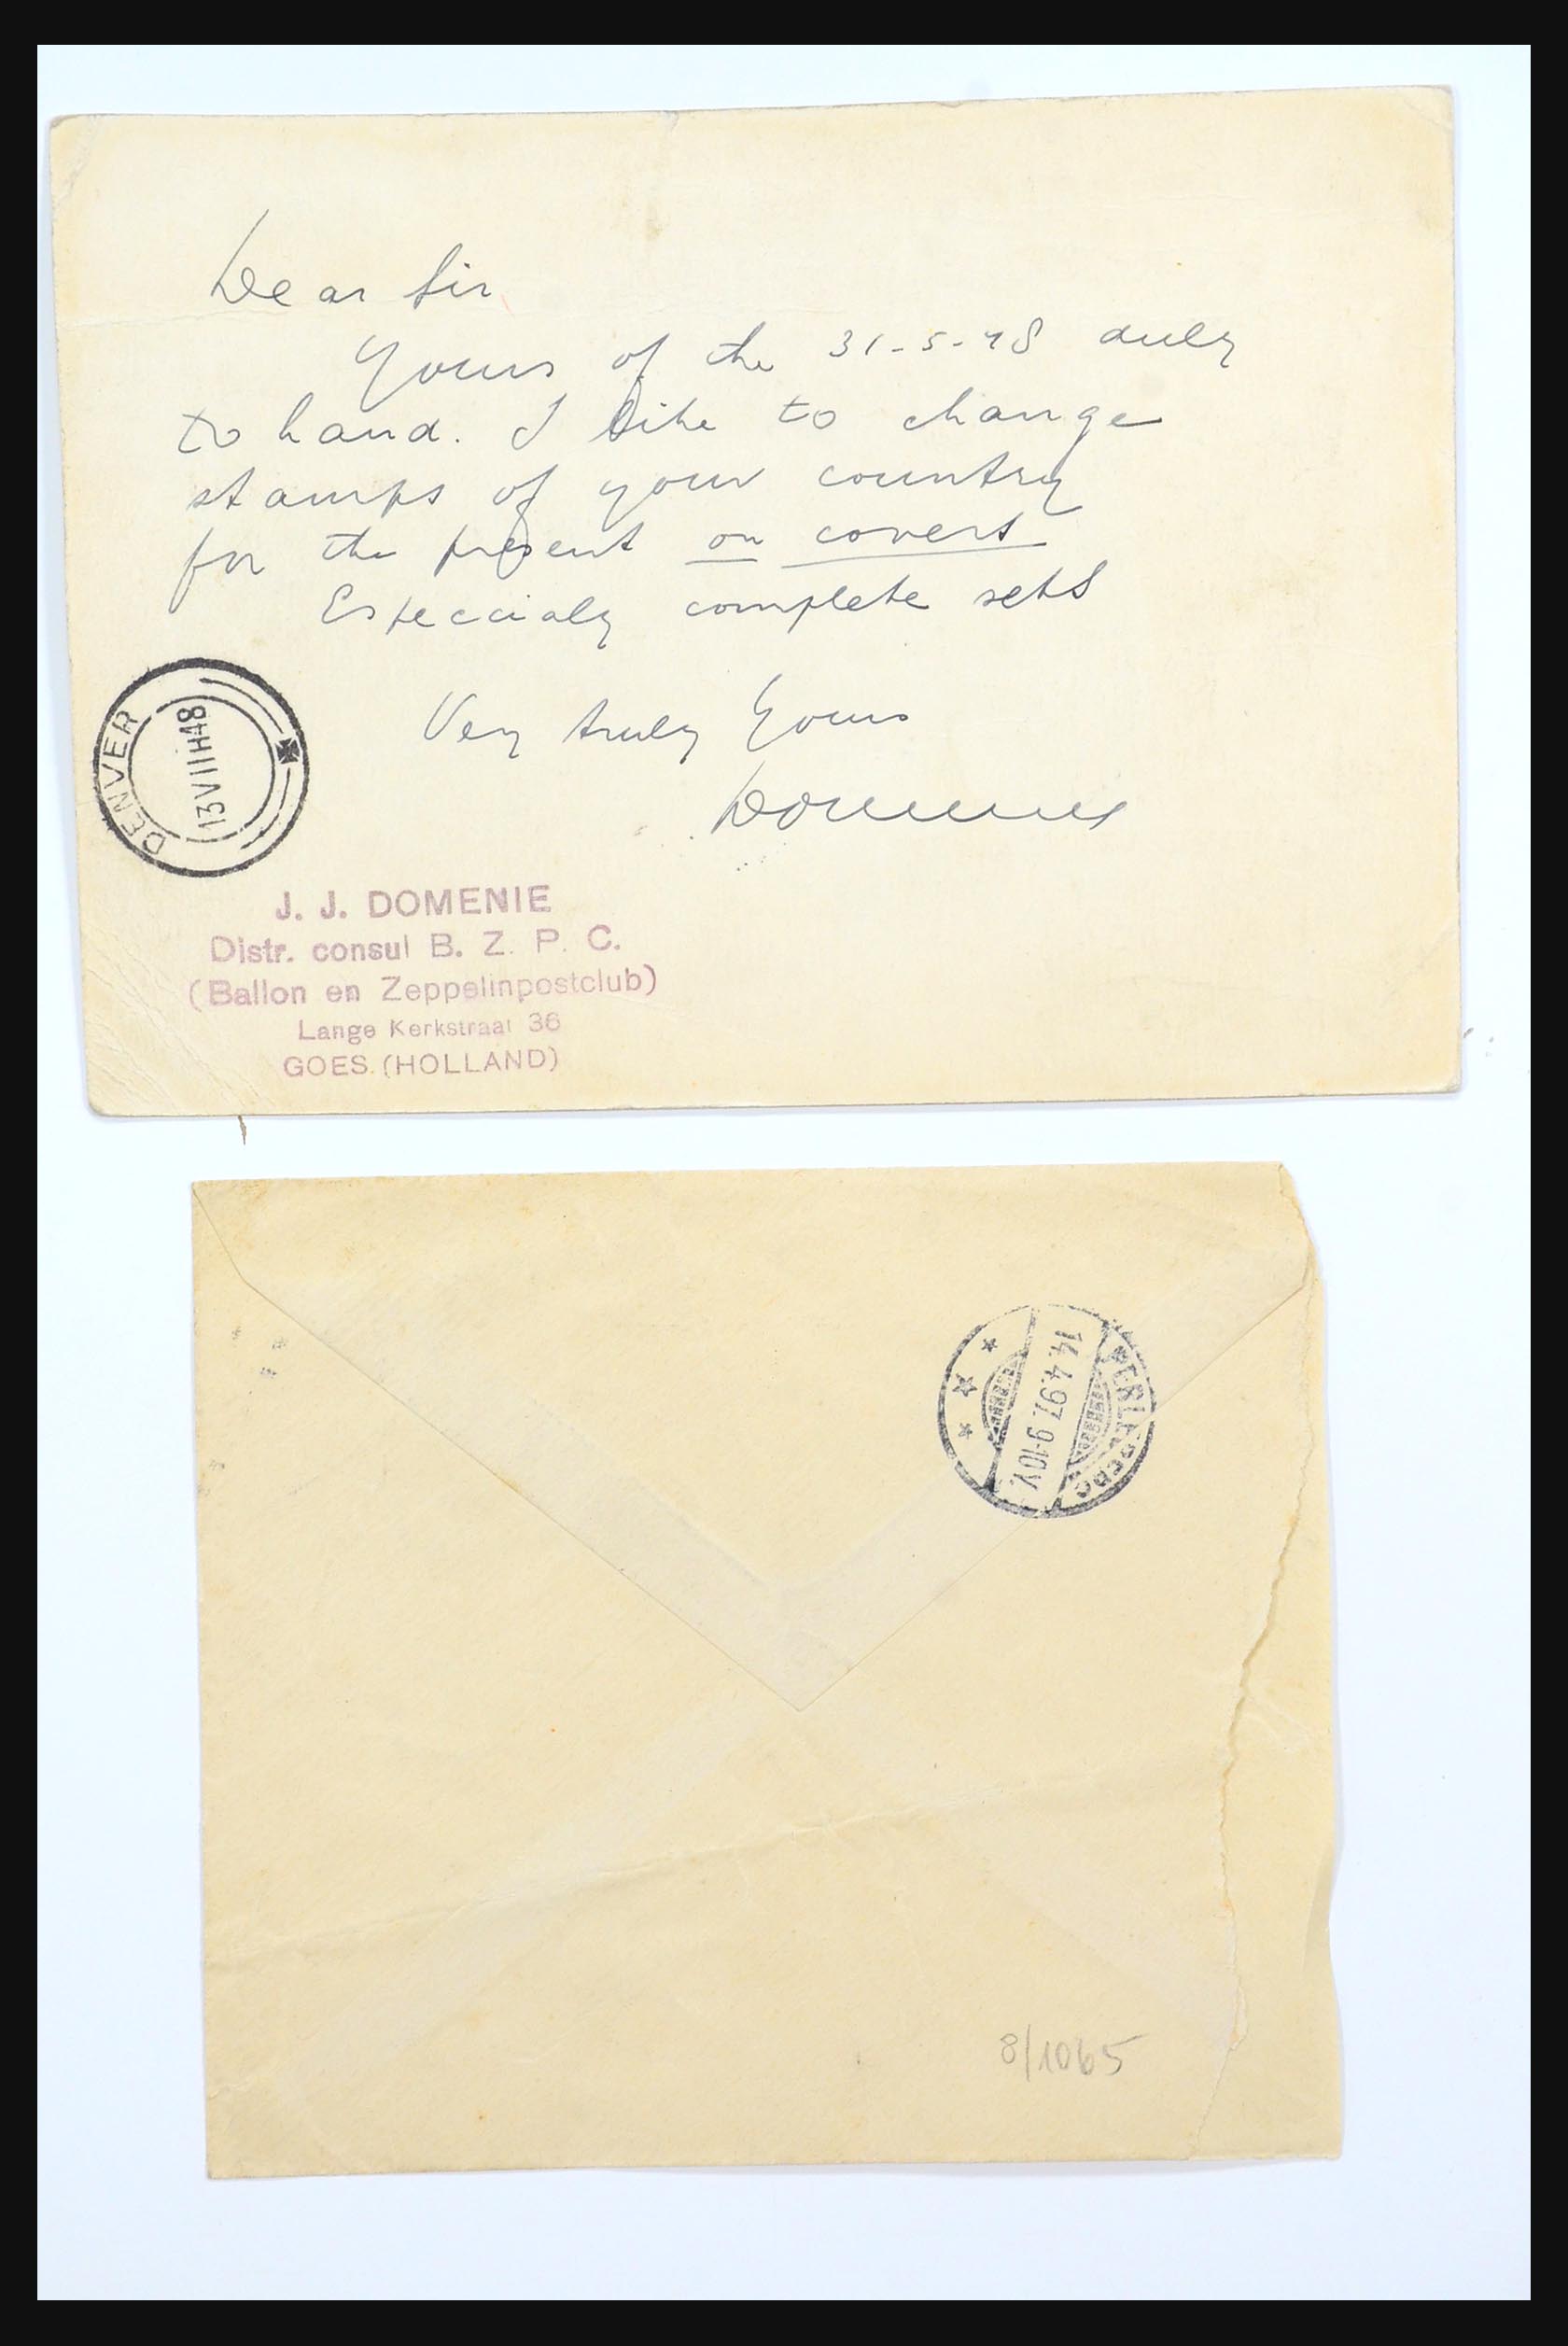 Dear Sir
Yours of the 31-5-48 duly
to hand. I like to change
stamps of your country
for the present on covers
Especcialy complete sets
Very truly Yours
Domenie
DENVER
13 VIII 48
J. J. DOMENIE
Distr. consul B. Z. P. C.
(Ballon en Zeppelinpostclub)
Lange Kerkstraat 36
GOES. (HOLLAND)
PERLEBERG
14.4.97. 9-10V.
8/1065